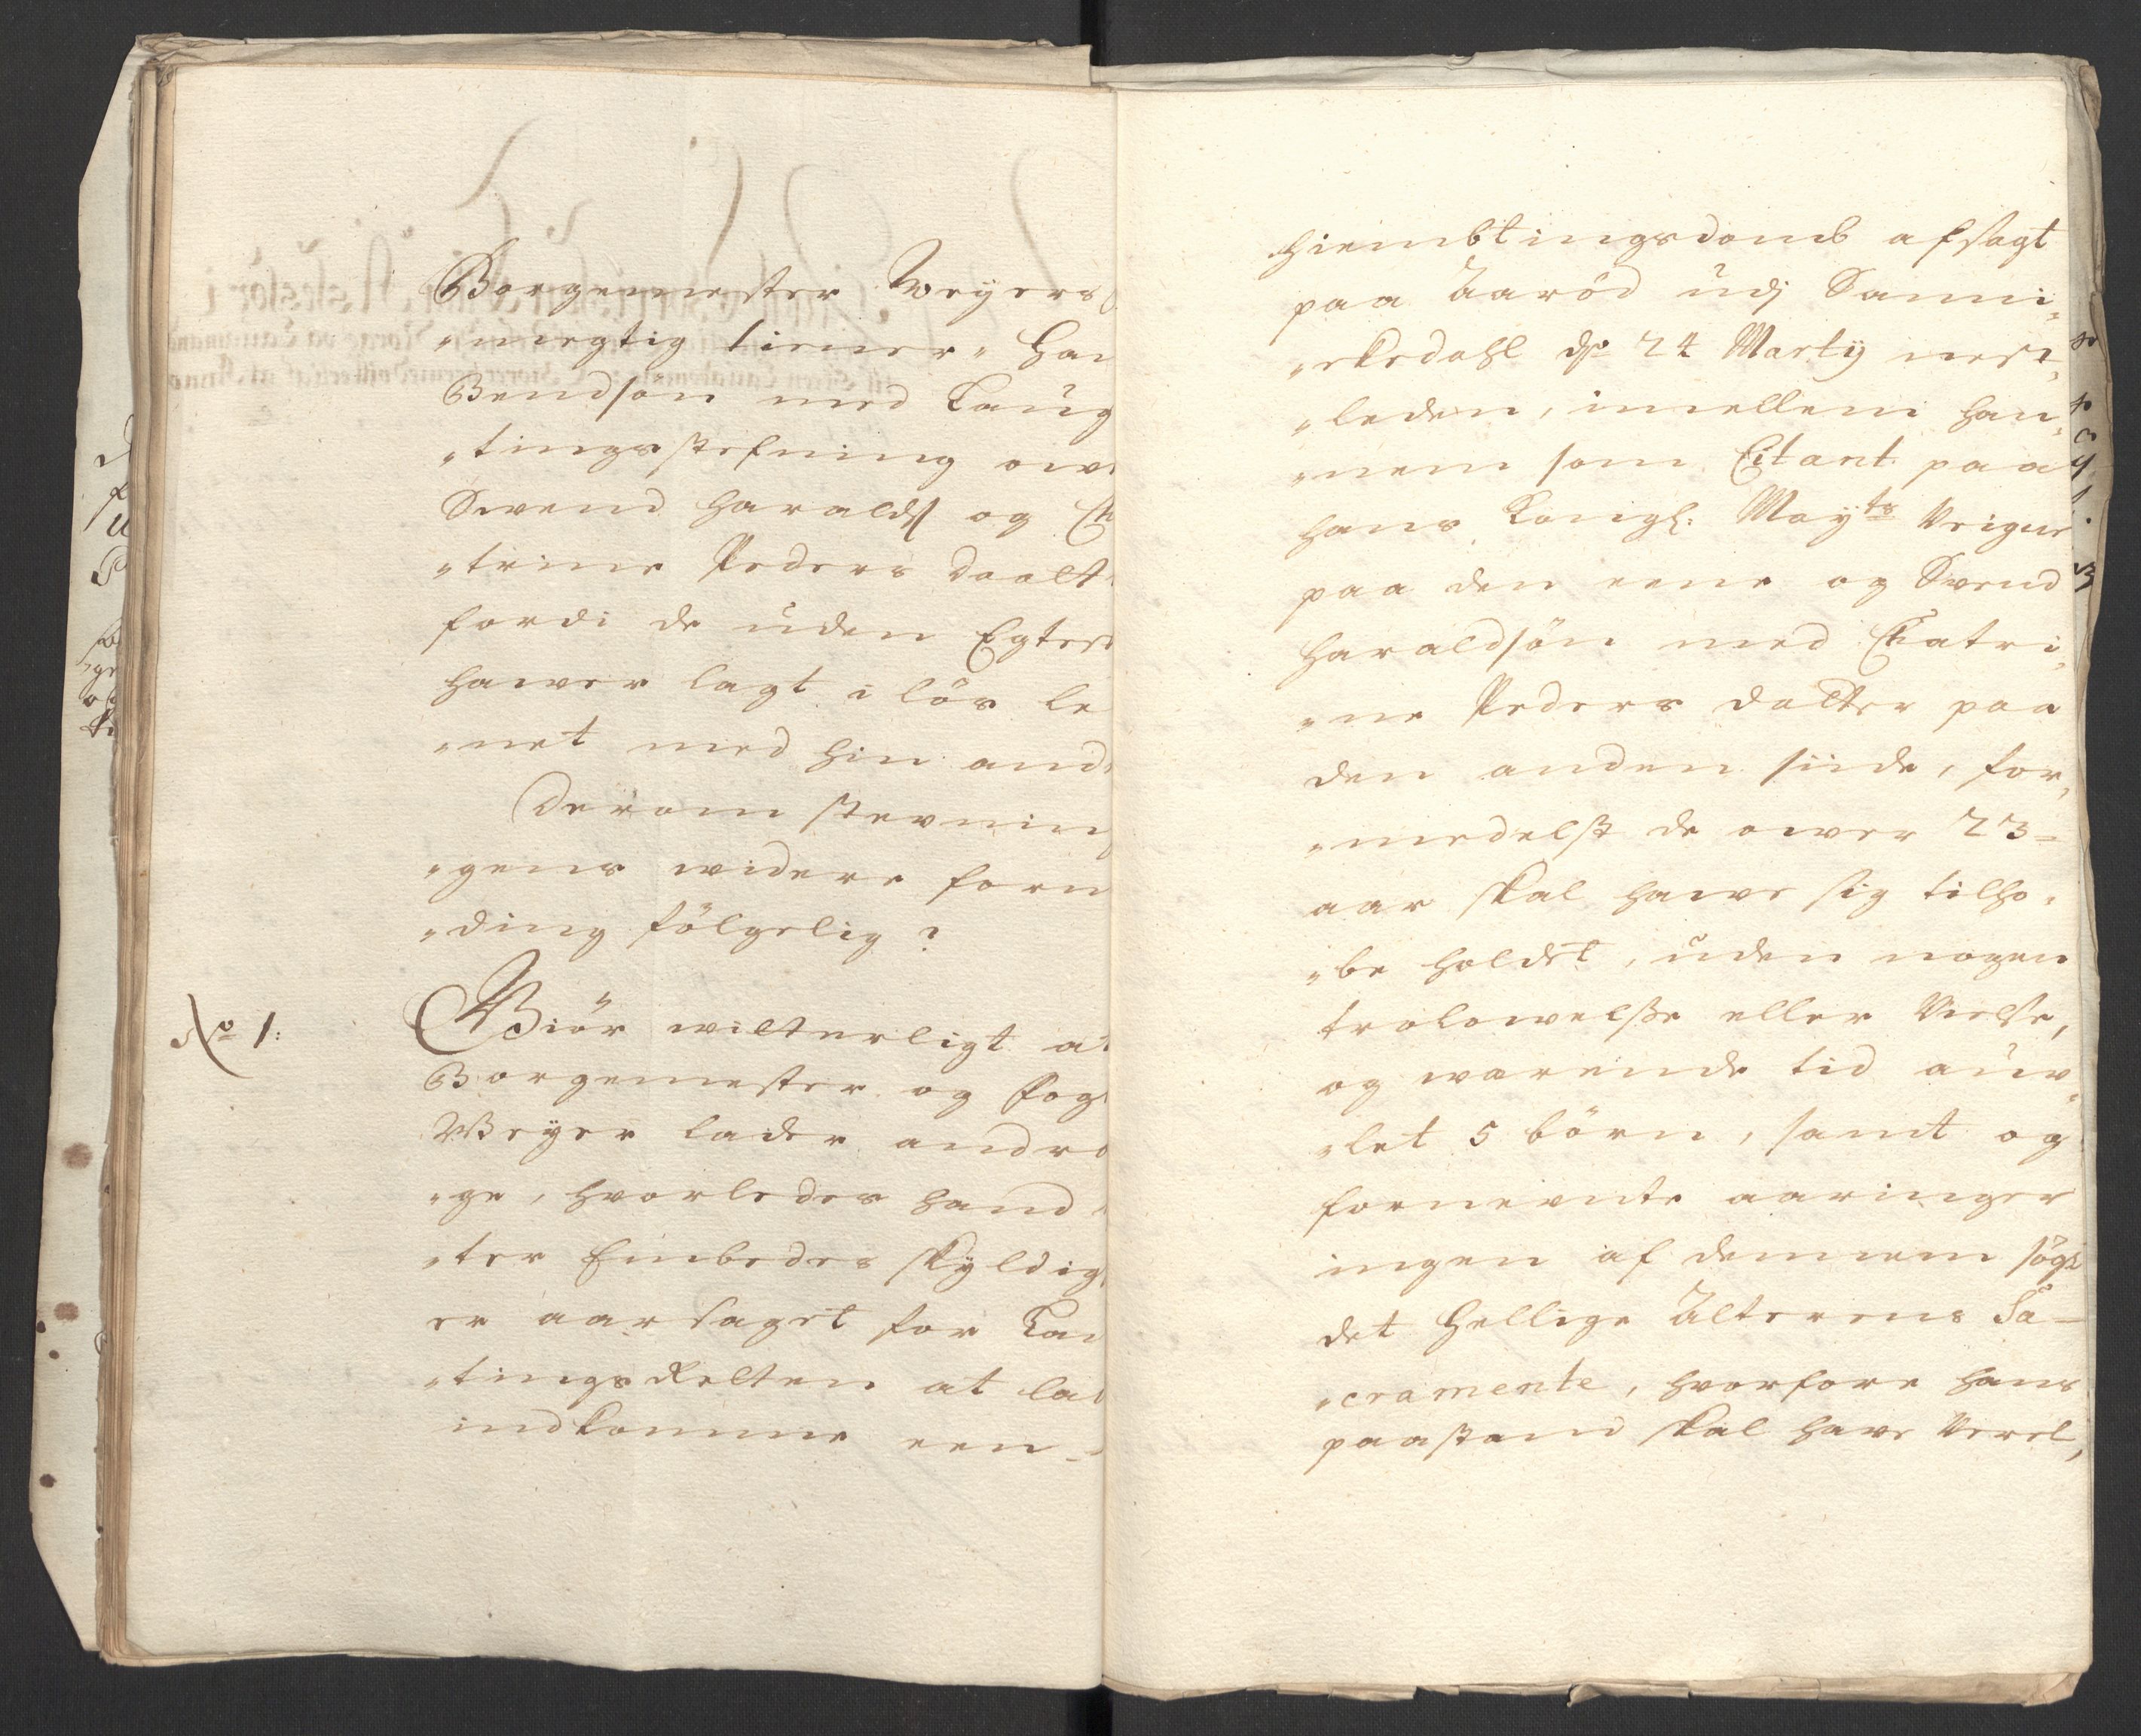 Borgemester Weyers
"megtig tiener, Han
Bendson med Laug
"tingsstefning ower
Swend Haralds: og Ch
"trine Peders daatt
fordi de uden Egtes
hawer lagt i løs le
"net med hin and
Derom stevnin
"gens widere form
"ding følgelig?
No 1:
Giør witterligt at
Borgemester og Fog
Weyer lader andra
"ge, hvorledes hand
"ter Embedes skyldig
er aarsaget for Lau
"tings Retten at lad
indkomme een
Hiembtingsdomb afsagt
paa Aarød udj Sanni,
"ckedahl d. 24 Marty nest,
"leden, imellem han,
"nem som Citant paa
Hans Kongl: Mayts Veigne
paa den eene og Swend
Haraldsøn med Chatri,
"ne Peders datter paa
den anden siide, for,
"medelst de ower 23=
aar skal hawe sig tilho,
"be holdet, uden nogen
trolowelsse eller Vielse,
og warende tid auv,
"let 5 børn, samt og
fornevnte aaringer
ingen af dennem søgt
det Hellige Alterens Sa=
"cramente, hvorfore hans
paastand skal have Veret,